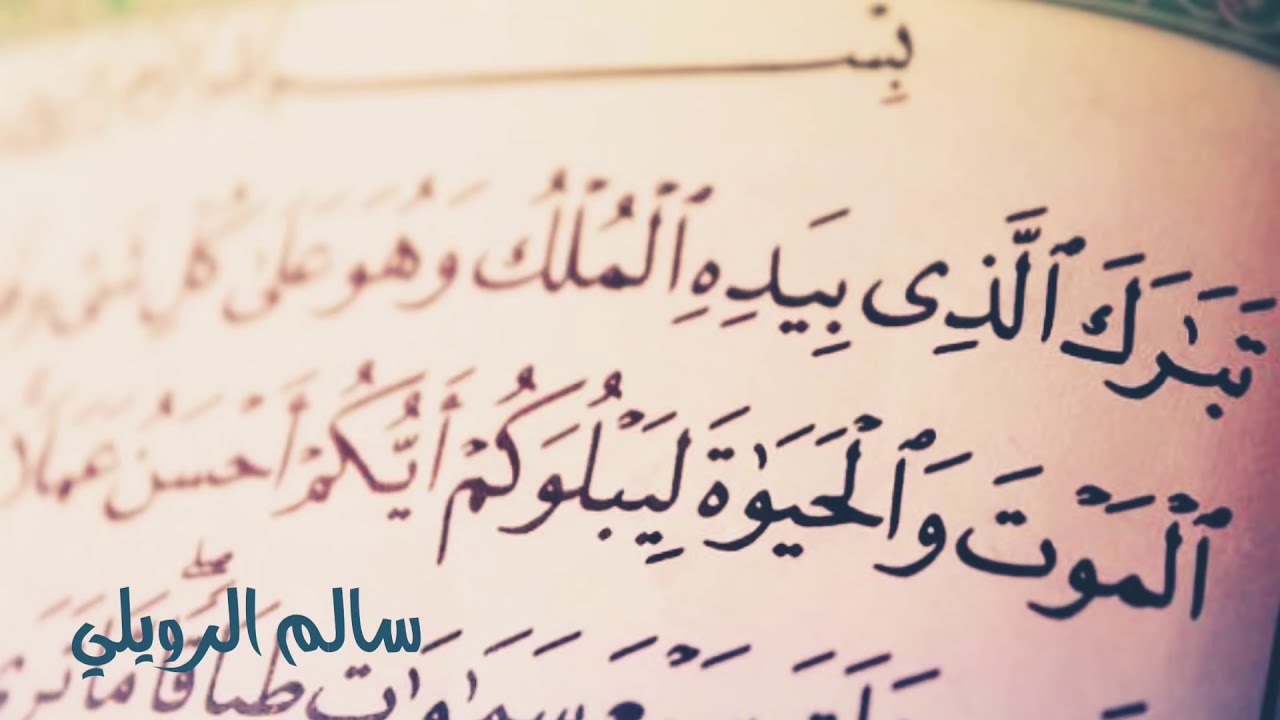 بِسْ
تَبَٰرَكَ ٱلَّذِى بِيَدِهِ ٱلْمُلْكُ وَهُوَ عَلَىٰ كُلِّ شَىْءٍ
ٱلْمَوْتَ وَٱلْحَيَوٰةَ لِيَبْلُوَكُمْ أَيُّكُمْ أَحْسَنُ عَمَلًا
سَبْعَ سَمَٰوَٰتٍ طِبَاقًا ۖ مَّا تَرَىٰ
سالم الرويلي